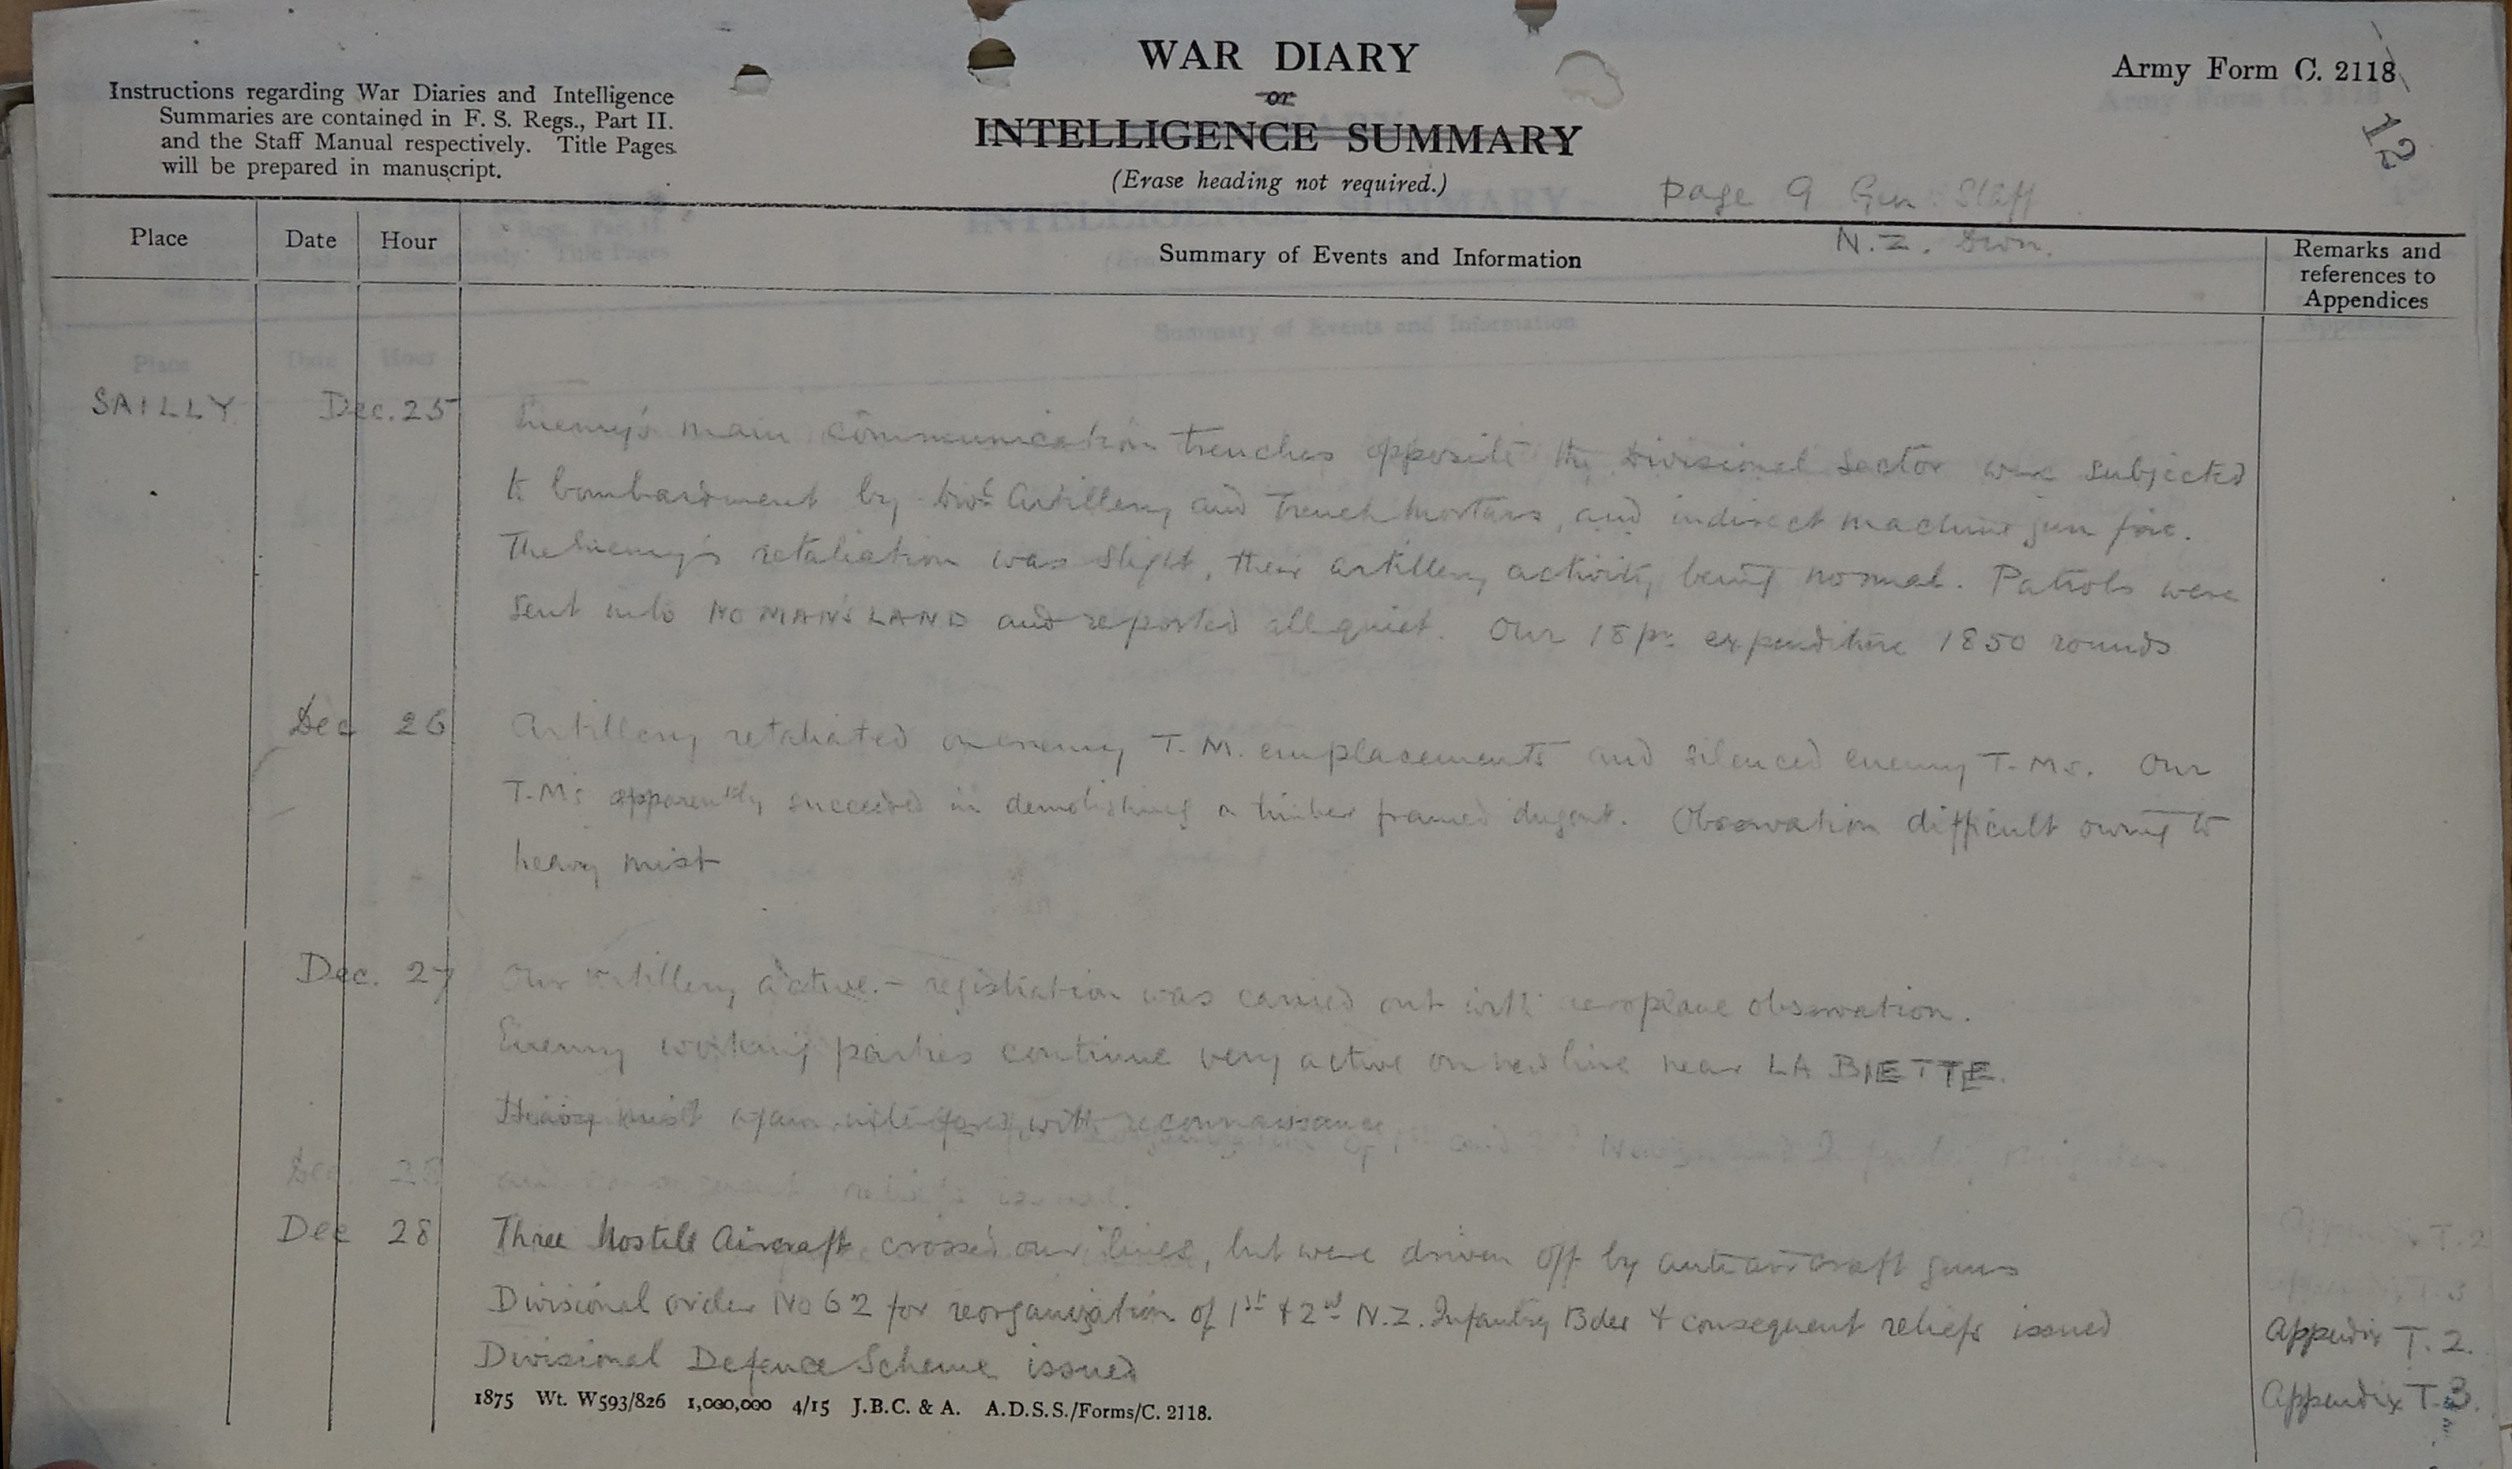 WAR DIARY
or
INTELLIGENCE SUMMARY
(Erase heading not required.)
Army Form C. 2118
12
Instructions regarding War Diaries and Intelligence
Summaries are contained in F. S. Regs., Part II.
and the Staff Manual respectively. Title Pages
will be prepared in manuscript.
Page 9 Gen. Staff
N.Z. Divn.
Place Date Hour Summary of Events and Information Remarks and
references to
Appendices
SAILLY Dec. 25 Enemy's main communication trenches opposite the Divisional Sector were subjected
to bombardment by Divl Artillery and Trench Mortars, and indirect machine gun fire.
The Enemy's retaliation was slight, their artillery activity being normal. Patrols were
sent into NO MAN'S LAND and reported all quiet. Our 18 pr expenditure 1850 rounds
Dec 26 Artillery retaliated on enemy T.M. emplacements and silenced enemy T.Ms. Our
T.Ms apparently succeeded in demolishing a timber framed dugout. Observation difficult owing to
heavy mist
Dec. 27 Our artillery active. - registration was carried out with aeroplane observation.
Enemy working parties continue very active on new line near LA BIETTE.
Heavy mist again interfered with reconnaissance
Dec. 28
Dec 28 Three Hostile Aircraft crossed our lines, but were driven off by anti aircraft guns
Divisional order No 62 for reorganization of 1st & 2nd N.Z. Infantry Bdes & consequent reliefs issued Appendix T.2.
Divisional Defence Scheme issued Appendix T.3.
1875 Wt. W593/826 1,000,000 4/15 J.B.C. & A. A.D.S.S./Forms/C. 2118.